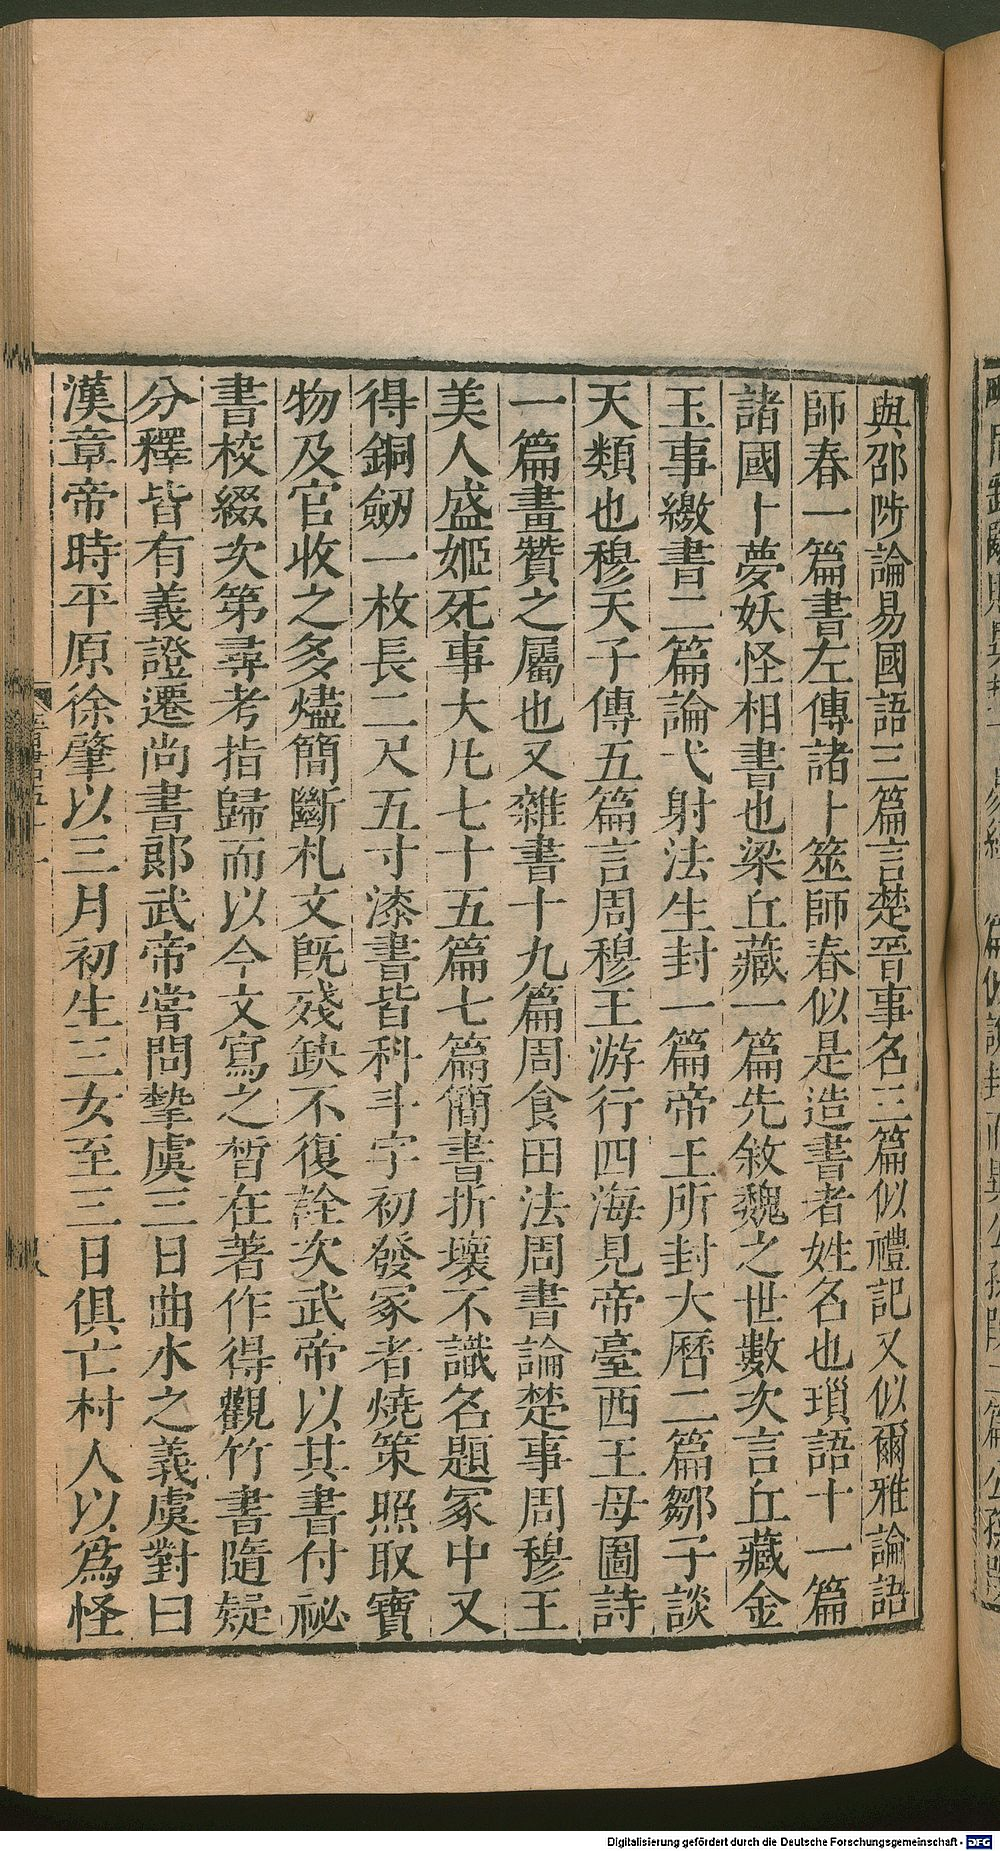 與邵陟論易國語三篇言楚晉事名三篇似禮記又似爾雅論語
師春一篇書左傳諸卜筮師春似是造書者姓名也瑣語十一篇
諸國卜夢妖怪相書也梁丘藏一篇先敘魏之世數次言丘藏金
玉事繳書二篇論弋射法生封一篇帝王所封大曆二篇鄒子談
天類也穆天子傳五篇言周穆王游行四海見帝臺西王母圖詩
一篇畫贊之屬也又雜書十九篇周食田法周書論楚事周穆王
美人盛姬死事大凡七十五篇七篇簡書折壞不識名題冢中又
得銅劒一枚長二尺五寸漆書皆科斗字初發冢者燒策照取寶
物及官收之多燼簡斷札文既殘缺不復詮次武帝以其書付祕
書校綴次第尋考指歸而以今文寫之晳在著作得觀竹書隨疑
分釋皆有義證遷尚書郎武帝嘗問摯虞三日曲水之義虞對曰
漢章帝時平原徐肇以三月初生三女至三日俱亡村人以爲怪
Digitalisierung gefördert durch die Deutsche Forschungsgemeinschaft - DFG